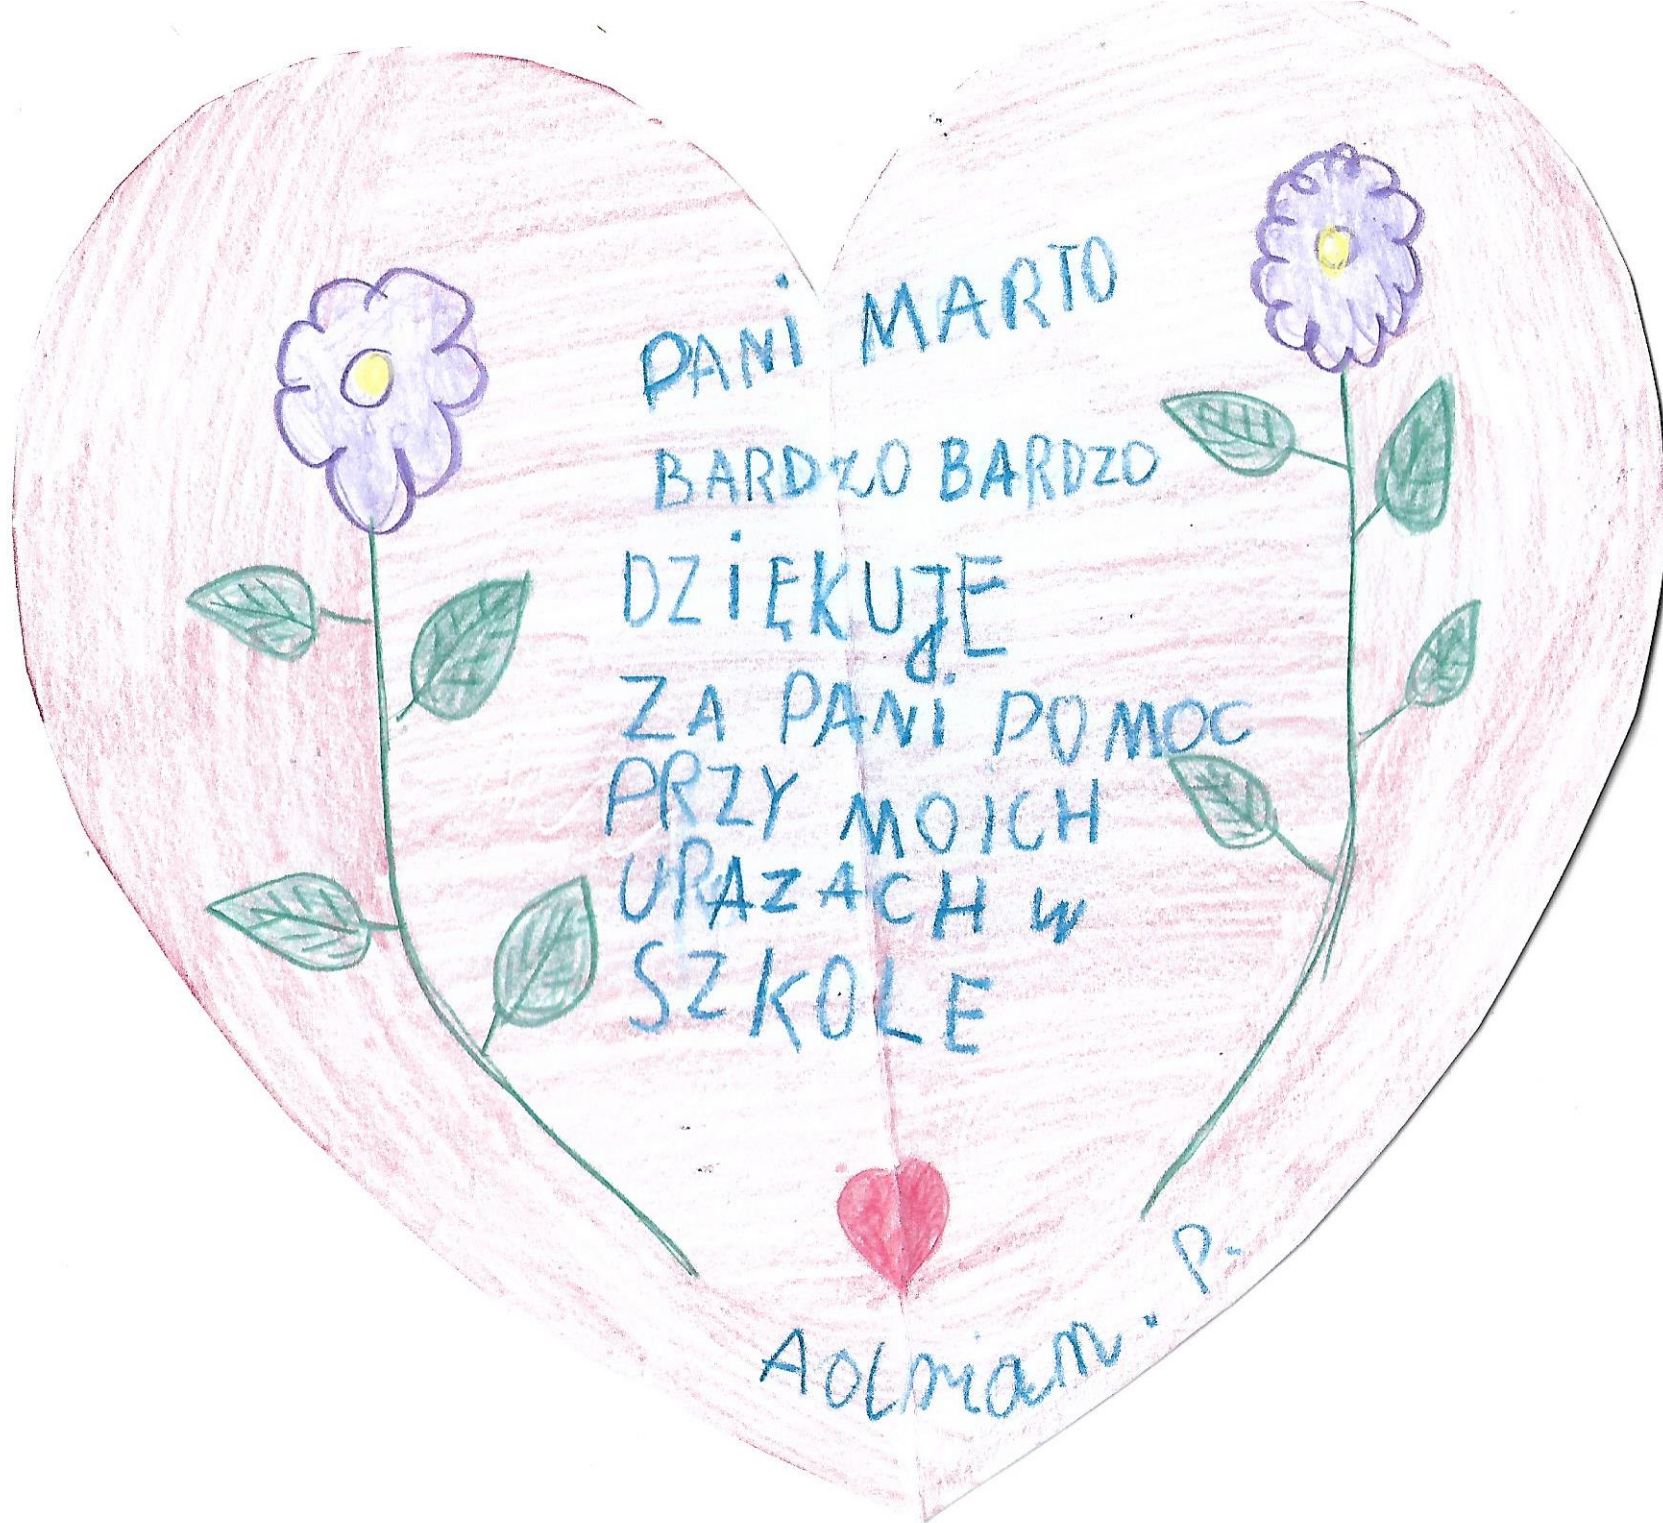 PANi MARTO
BARDZO BARDZO
DZiĘKUJE
ZA PANi POMOC
PRZY MOICH
URAZACH W
SZKOLE
Adrian. P.